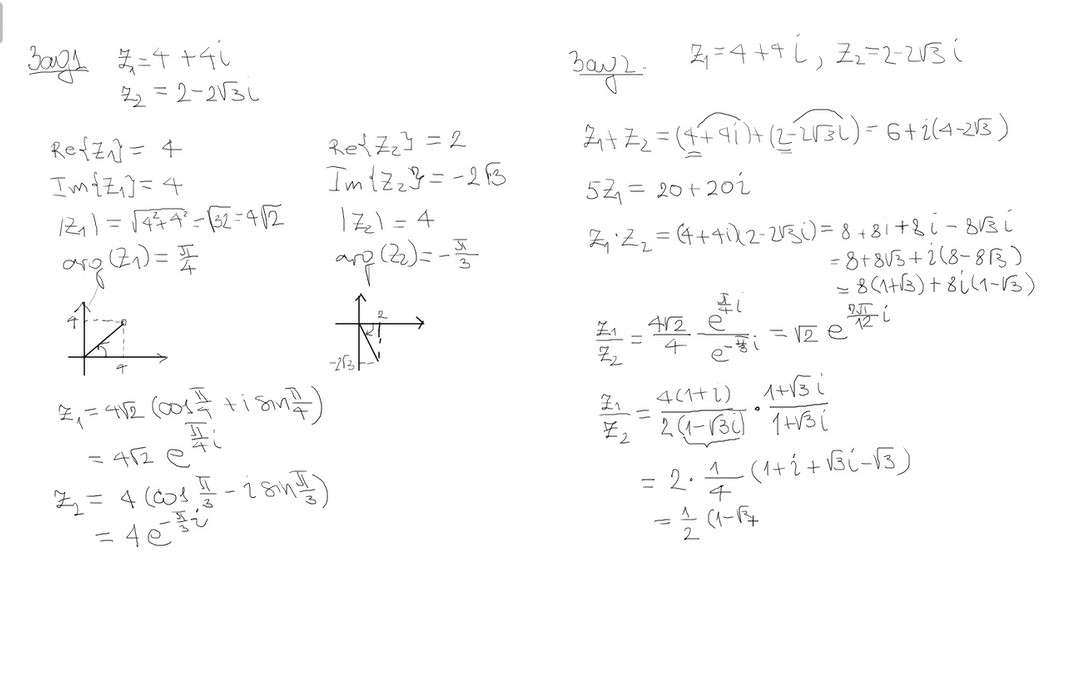 Зад1 z₁=4+4i
z₂ = 2-2√3i
Re{z₁}= 4
Im{z₁}=4
|z₁| = √4²+4² = √32 = 4√2
arg(z₁) = π/4
Re{z₂} = 2
Im{z₂} = -2√3
|z₂| = 4
arg(z₂) = -π/3
4
4
2
-2√3
z₁ = 4√2 (cos π/4 + i sin π/4)
= 4√2 e^(π/4 i)
z₂ = 4 (cos π/3 - i sin π/3)
= 4e^(-π/3 i)
Зад2. z₁=4+4i, z₂=2-2√3i
z₁+z₂ = (4+4i)+(2-2√3i) = 6+i(4-2√3)
5z₁ = 20+20i
z₁·z₂ = (4+4i)(2-2√3i) = 8+8i+8i-8√3i
= 8+8√3+i(8-8√3)
= 8(1+√3)+8i(1-√3)
z₁/z₂ = 4√2/4 e^(π/4 i)/e^(-π/3 i) = √2 e^(7π/12 i)
z₁/z₂ = 4(1+i)/2(1-√3i) · 1+√3i/1+√3i
= 2·1/4 (1+i+√3i-√3)
= 1/2 (1-√3+